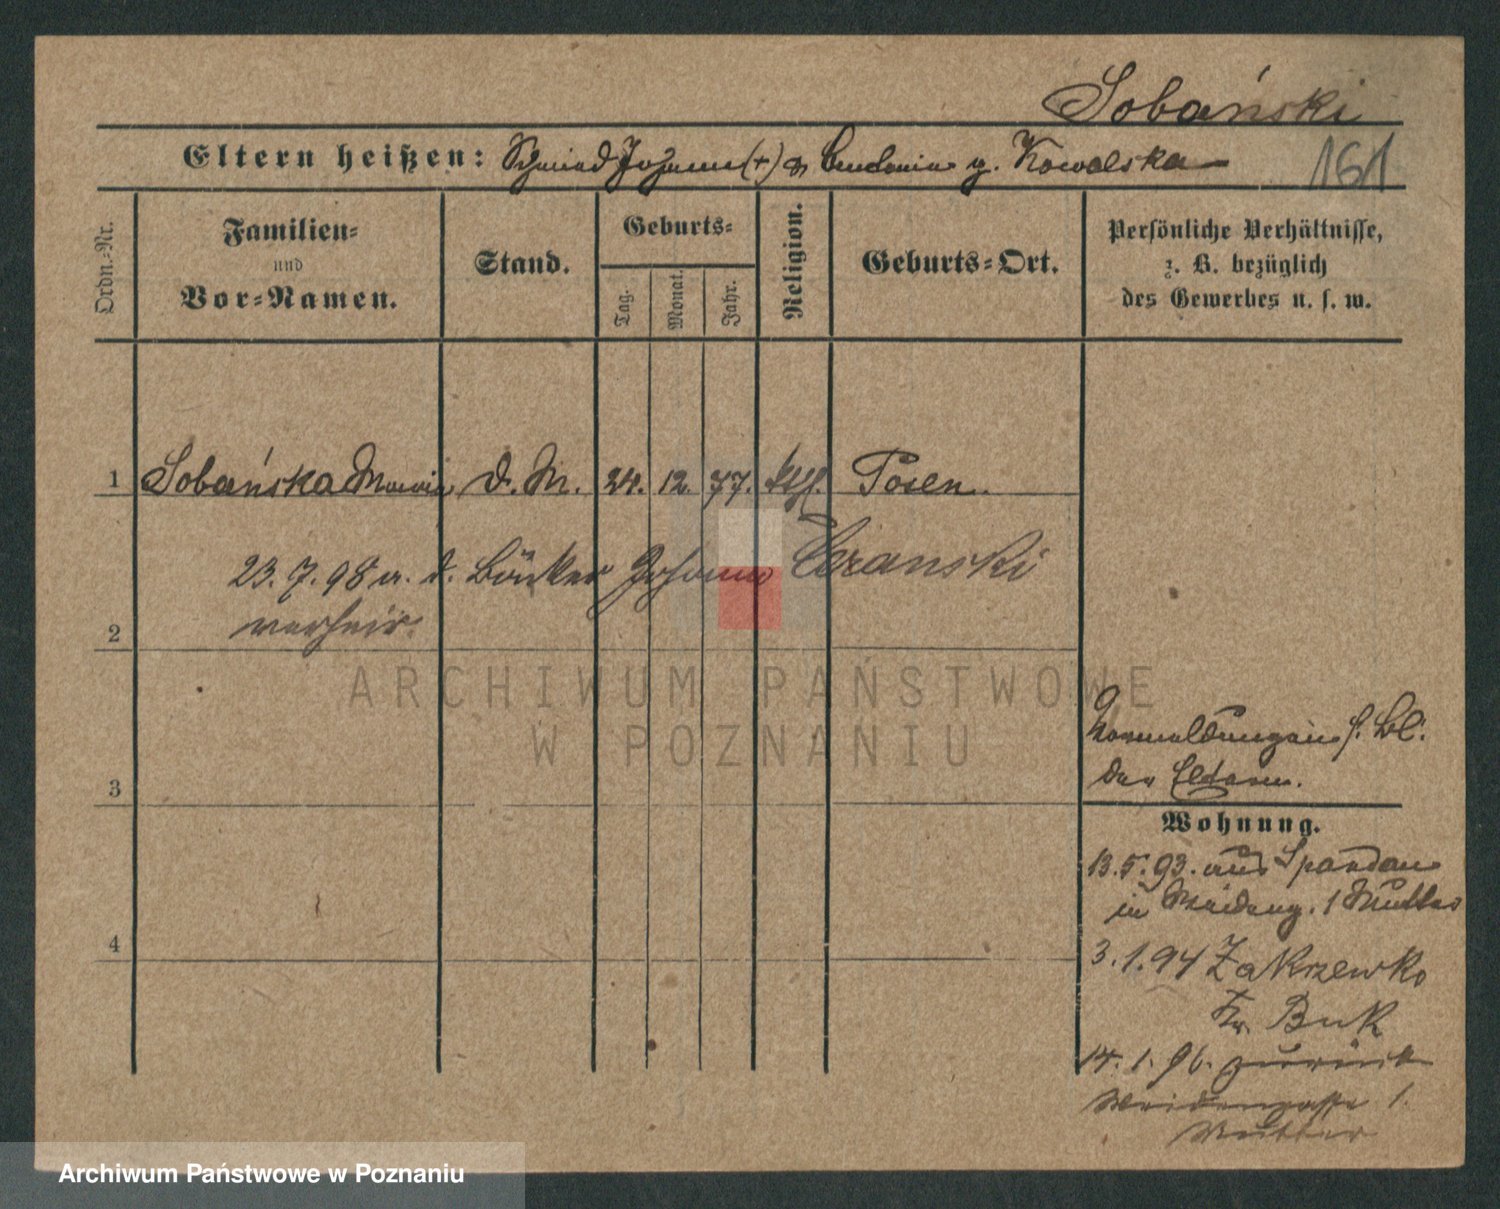 Sobański
Eltern heißen: Schmied Johann (+) & g. Kowalska
161
Ordn.-Nr.
Familien-
und
Vor-Namen.
Stand.
Geburts-
Tag.
Monat.
Jahr.
Religion.
Geburts-Ort.
Persönliche Verhältnisse,
z. B. bezüglich
des Gewerbes u. s. w.
1 Sobańska Maria d. M. 24. 12. 77. kth. Posen.
23. 7. 98 a. d. Bäcker Johann
verheir.
2
3
4
Anmeldungen s. Bl.
der Eltern.
Wohnung.
13. 5. 93. aus Spandau
in Weideng. 1 Mutter
3. 1. 94 Zakrzewko
Kr. Buk
14. 1. 96. zurück
Weidengasse 1.
Mutter
ARCHIWUM PAŃSTWOWE
W POZNANIU
Archiwum Państwowe w Poznaniu